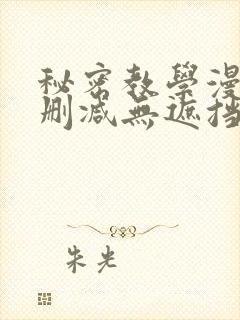 秘密教學漫
刪減無遮挡
朱光